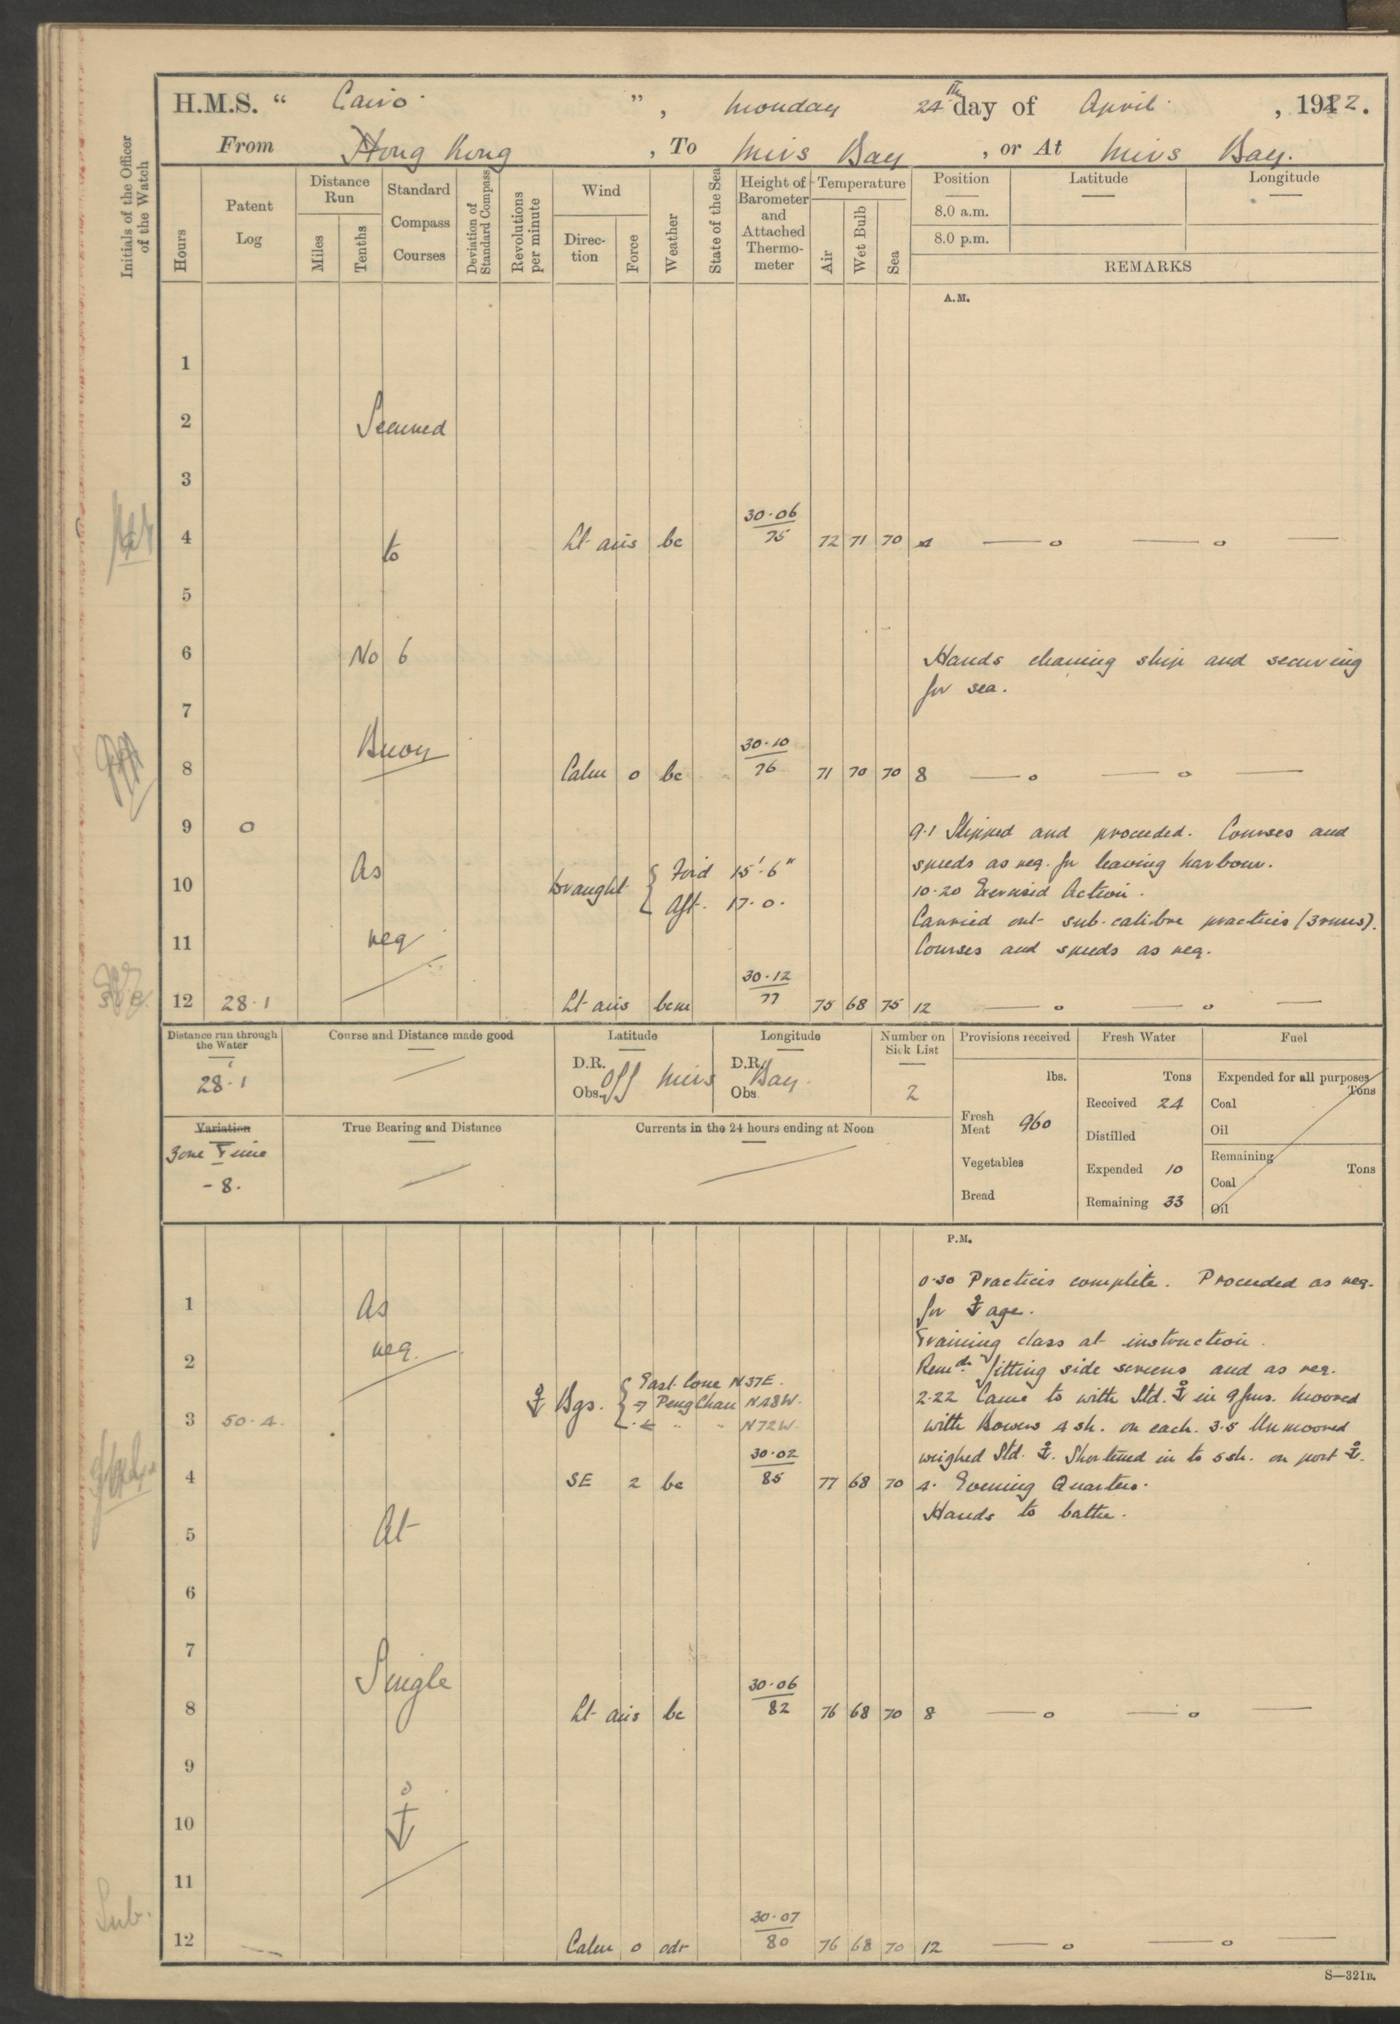 H.M.S. “ Cairo. ”, Monday 24th day of April. , 1922.
From Hong Kong , To Mirs Bay , or At Mirs Bay.
Initials of the Officer of the Watch
Hours
Patent Log
Distance Run
Miles
Tenths
Standard Compass Courses
Deviation of Standard Compass
Revolutions per minute
Wind
Direction
Force
Weather
State of the Sea
Height of Barometer and Attached Thermometer
Temperature
Air
Wet Bulb
Sea
Position
Latitude
Longitude
8.0 a.m.
8.0 p.m.
REMARKS
A.M.
1
2 Secured
3
4 to Lt airs bc 30.06 75 72 71 70 4 — o — o —
5
6 No 6 Hands cleaning ship and securing
for sea.
7
Buoy
8 Calm o bc 30.10 76 71 70 70 8 — o — o —
9 o 9.1 Slipped and proceeded. Courses and
As speeds as req. for leaving harbour.
10 Draught { Ford 15'.6" 10.20 Exercised Action.
Aft. 17.0. Carried out sub-calibre practices (3 runs).
11 req Courses and speeds as req.
12 28.1 Lt airs bcm 30.12 77 75 68 75 12 — o — o —
Distance run through the Water
28.1
Course and Distance made good
Latitude
D.R.
Obs. Off Mirs
Longitude
D.R.
Obs Bay.
Number on Sick List
2
Provisions received
lbs.
Fresh Meat 960
Vegetables
Bread
Fresh Water
Tons
Received 24
Distilled
Expended 10
Remaining 33
Fuel
Expended for all purposes
Tons
Coal
Oil
Remaining
Tons
Coal
Oil
Variation
Zone Time
-8.
True Bearing and Distance
Currents in the 24 hours ending at Noon
P.M.
0.30 Practices complete. Proceeded as req.
1 As for ⚓age.
Training class at instruction.
2 req. Remdr fitting side screens and as req.
⚓ Bgs. { East Cone N37E. 2.22 Came to with Std. ⚓ in 9 fms. Moored
→ Peng Chau N48W.
3 50.4. ← " " N72W. with Bowers 4 sh. on each. 3.5 Unmoored
weighed Std. ⚓. Shortened in to 5 sh. on port ⚓.
4 SE 2 bc 30.02 85 77 68 70 4. Evening Quarters.
Hands to bathe.
5 At
6
7
Single
8 Lt airs bc 30.06 82 76 68 70 8 — o — o —
9
10 ⚓
11
Sub.
12 Calm o odr 30.07 80 76 68 70 12 — o — o —
S—321B.